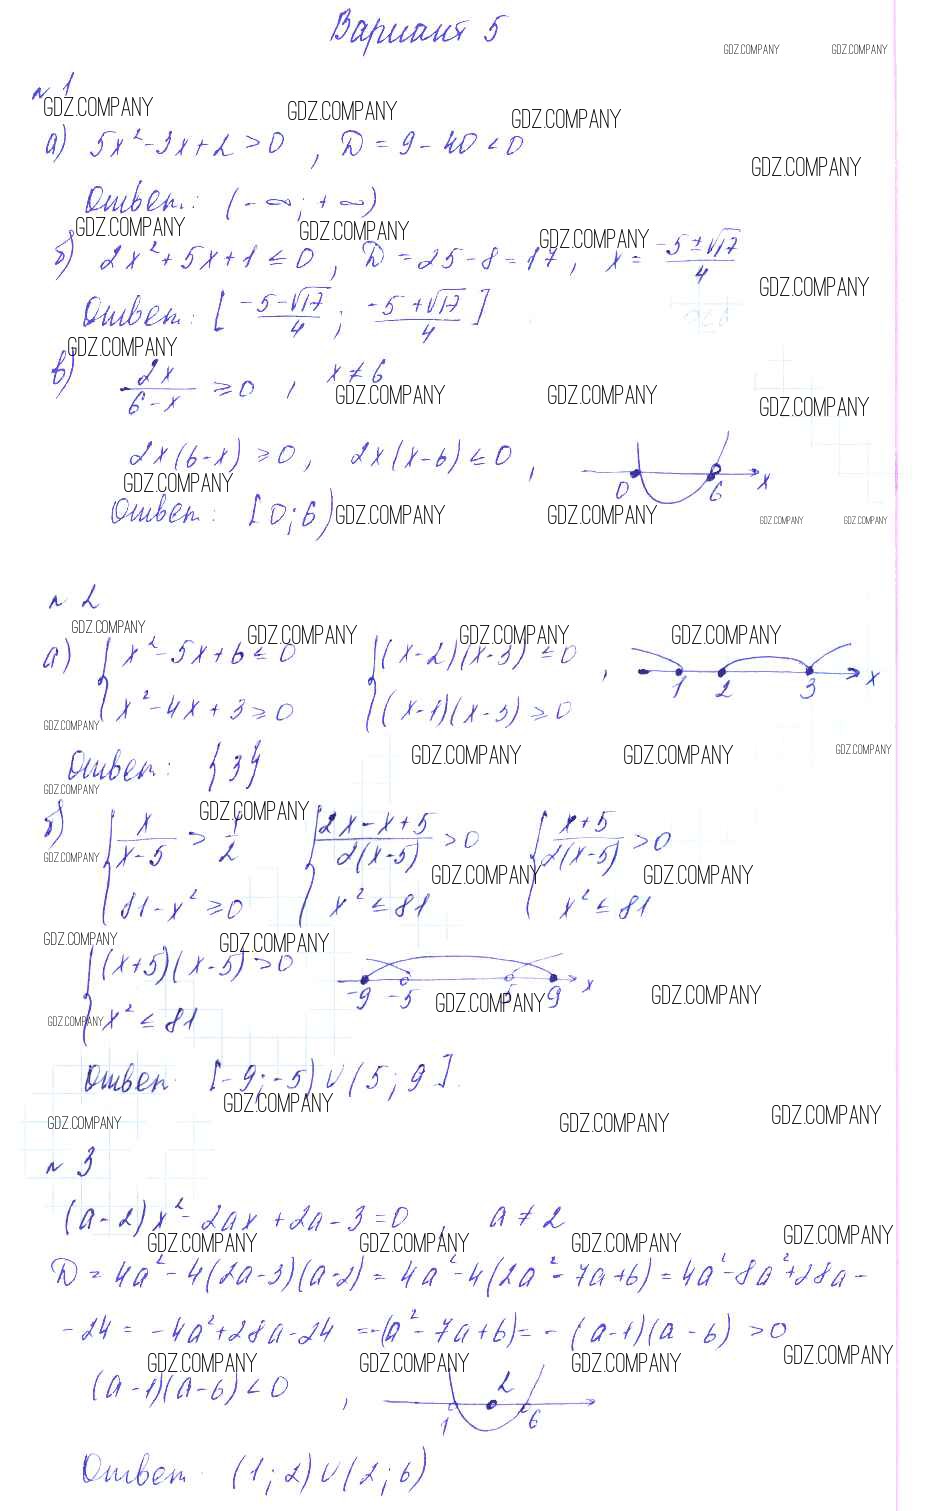 Вариант 5
GDZ.COMPANY GDZ.COMPANY
№ 1
GDZ.COMPANY GDZ.COMPANY GDZ.COMPANY
а) 5x² - 3x + 2 > 0 , D = 9 - 40 < 0
GDZ.COMPANY
Ответ: (-∞; +∞)
GDZ.COMPANY GDZ.COMPANY GDZ.COMPANY
б) 2x² + 5x + 1 ≤ 0 , D = 25 - 8 = 17, x = (-5 ± √17)/4
GDZ.COMPANY
Ответ: [(-5 - √17)/4 ; (-5 + √17)/4]
GDZ.COMPANY
в) 2x/(6 - x) ≥ 0 , x ≠ 6
GDZ.COMPANY GDZ.COMPANY GDZ.COMPANY
2x(6 - x) ≥ 0 , 2x(x - 6) ≤ 0 , 0 6 x
GDZ.COMPANY
Ответ: [0; 6)
GDZ.COMPANY GDZ.COMPANY GDZ.COMPANY GDZ.COMPANY
№ 2
GDZ.COMPANY GDZ.COMPANY GDZ.COMPANY GDZ.COMPANY
а) { x² - 5x + 6 ≤ 0 { (x - 2)(x - 3) ≤ 0 , 1 2 3 x
x² - 4x + 3 ≥ 0 (x - 1)(x - 3) ≥ 0
GDZ.COMPANY GDZ.COMPANY GDZ.COMPANY GDZ.COMPANY
Ответ: {3}
GDZ.COMPANY GDZ.COMPANY
б) { x/(x - 5) > 1/2 { (2x - x + 5)/(2(x - 5)) > 0 { (x + 5)/(2(x - 5)) > 0
GDZ.COMPANY GDZ.COMPANY GDZ.COMPANY
81 - x² ≥ 0 x² ≤ 81 x² ≤ 81
GDZ.COMPANY GDZ.COMPANY
{ (x + 5)(x - 5) > 0 -9 -5 5 9 x
GDZ.COMPANY GDZ.COMPANY
GDZ.COMPANY x² ≤ 81
Ответ: [-9; -5) ∪ (5; 9].
GDZ.COMPANY
GDZ.COMPANY GDZ.COMPANY GDZ.COMPANY
№ 3
(a - 2)x² - 2ax + 2a - 3 = 0 , a ≠ 2
GDZ.COMPANY GDZ.COMPANY GDZ.COMPANY GDZ.COMPANY
D = 4a² - 4(2a - 3)(a - 2) = 4a² - 4(2a² - 7a + 6) = 4a² - 8a² + 28a -
- 24 = -4a² + 28a - 24 = -(a² - 7a + 6) = -(a - 1)(a - 6) > 0
GDZ.COMPANY GDZ.COMPANY GDZ.COMPANY GDZ.COMPANY
(a - 1)(a - 6) < 0 , 1 2 6
Ответ: (1; 2) ∪ (2; 6)